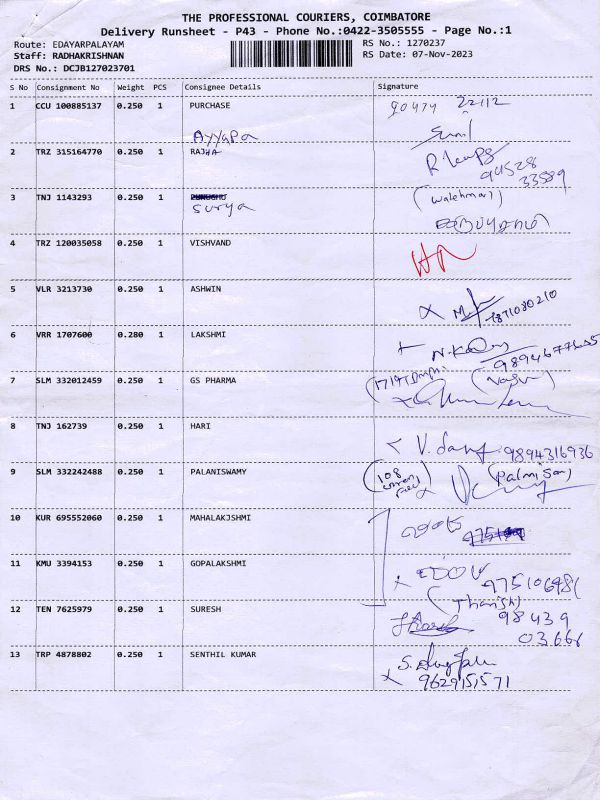 THE PROFESSIONAL COURIERS, COIMBATORE
Delivery Runsheet - P43 - Phone No.:0422-3505555 - Page No.:1
Route: EDAYARPALAYAM RS No.: 1270237
Staff: RADHAKRISHNAN RS Date: 07-Nov-2023
DRS No.: DCJB127023701
S No Consignment No Weight PCS Consignee Details Signature
1 CCU 100885137 0.250 1 PURCHASE 90479 22112
Ayyapa Sunil
2 TRZ 315164770 0.250 1 RAJHA
94528
33589
3 TNJ 1143293 0.250 1
Surya
4 TRZ 120035058 0.250 1 VISHVAND
5 VLR 3213730 0.250 1 ASHWIN
6 VRR 1707600 0.280 1 LAKSHMI
7 SLM 332012459 0.250 1 GS PHARMA
8 TNJ 162739 0.250 1 HARI
9894316936
9 SLM 332242488 0.250 1 PALANISWAMY
10 KUR 695552060 0.250 1 MAHALAKJSHMI
11 KMU 3394153 0.250 1 GOPALAKSHMI
12 TEN 7625979 0.250 1 SURESH
98439
03666
13 TRP 4878802 0.250 1 SENTHIL KUMAR
9629151571